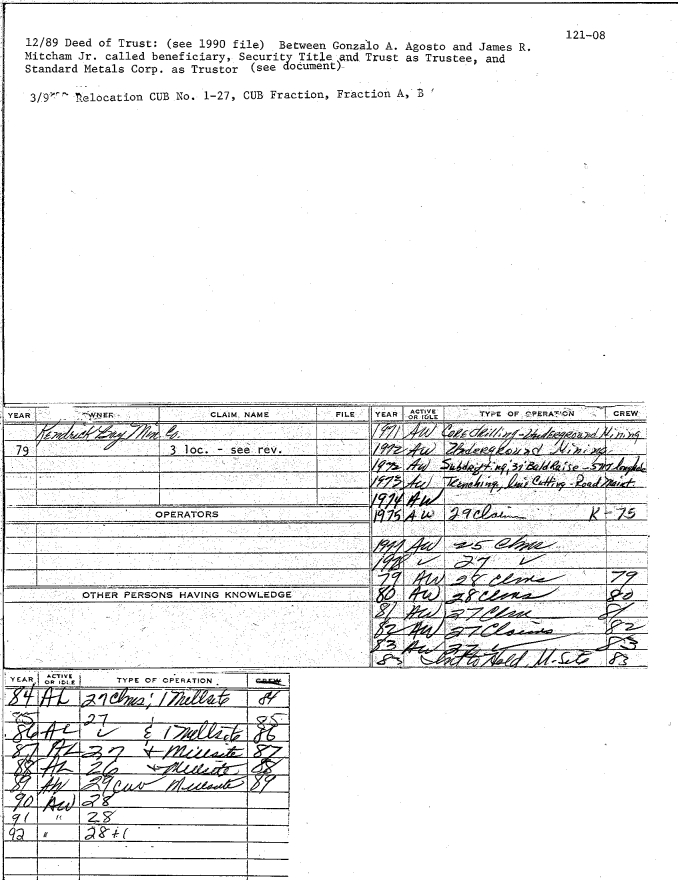 121-08
12/89 Deed of Trust: (see 1990 file) Between Gonzalo A. Agosto and James R.
Mitcham Jr. called beneficiary, Security Title and Trust as Trustee, and
Standard Metals Corp. as Trustor (see document)
Relocation CUB No. 1-27, CUB Fraction, Fraction A, B
YEAR OWNER CLAIM NAME FILE
Kendrick Bay Min. Co.
79 3 loc. - see rev.
OPERATORS
OTHER PERSONS HAVING KNOWLEDGE
YEAR ACTIVE OR IDLE TYPE OF OPERATION CREW
1971 AW Core Drilling - Underground Mining
1972 AW Underground Mining
1972 AW Subdrifting, Raise
1973 AW Trenching, Line Cutting - Road Maint.
1974 AW
1975 AW 29 Claim K-75
1977 AW 25 Clms
1978 ✓ 27 ✓
79 AW 28 clms 79
80 AW 28 clms 80
81 AW 27 Clm 81
82 AW 27 Claims 82
83 AW ✓ 83
83 Int to Hold, M-Site 83
YEAR ACTIVE OR IDLE TYPE OF OPERATION CREW
84 AL 27 Clms; 1 Millsite 84
85 27 85
86 AL ✓ & 1 Millsite 86
87 AL 27 + Millsite 87
88 AL 26 + Millsite 88
89 AW 29 Millsite 89
90 AW 28
91 " 28
92 " 28+1